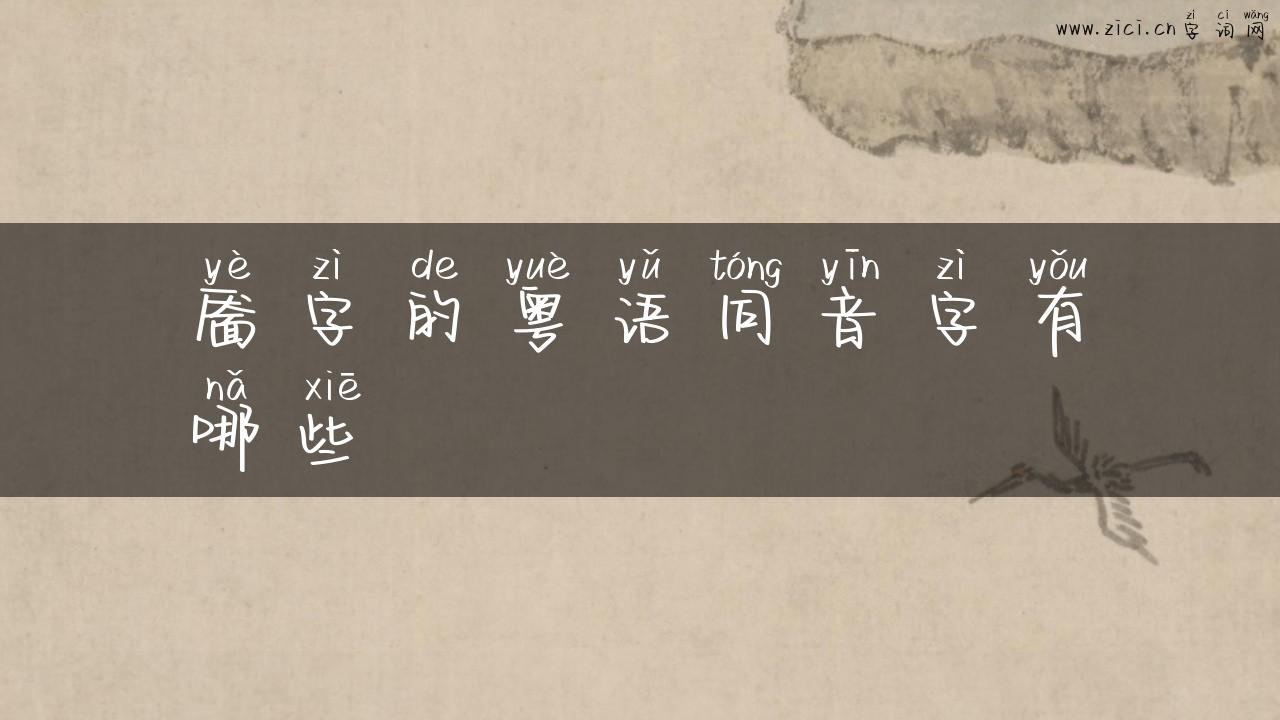 www.zici.cn zì cí wǎng
字词网
yè zì de yuè yǔ tóng yīn zì yǒu
靥字的粤语同音字有
nǎ xiē
哪些